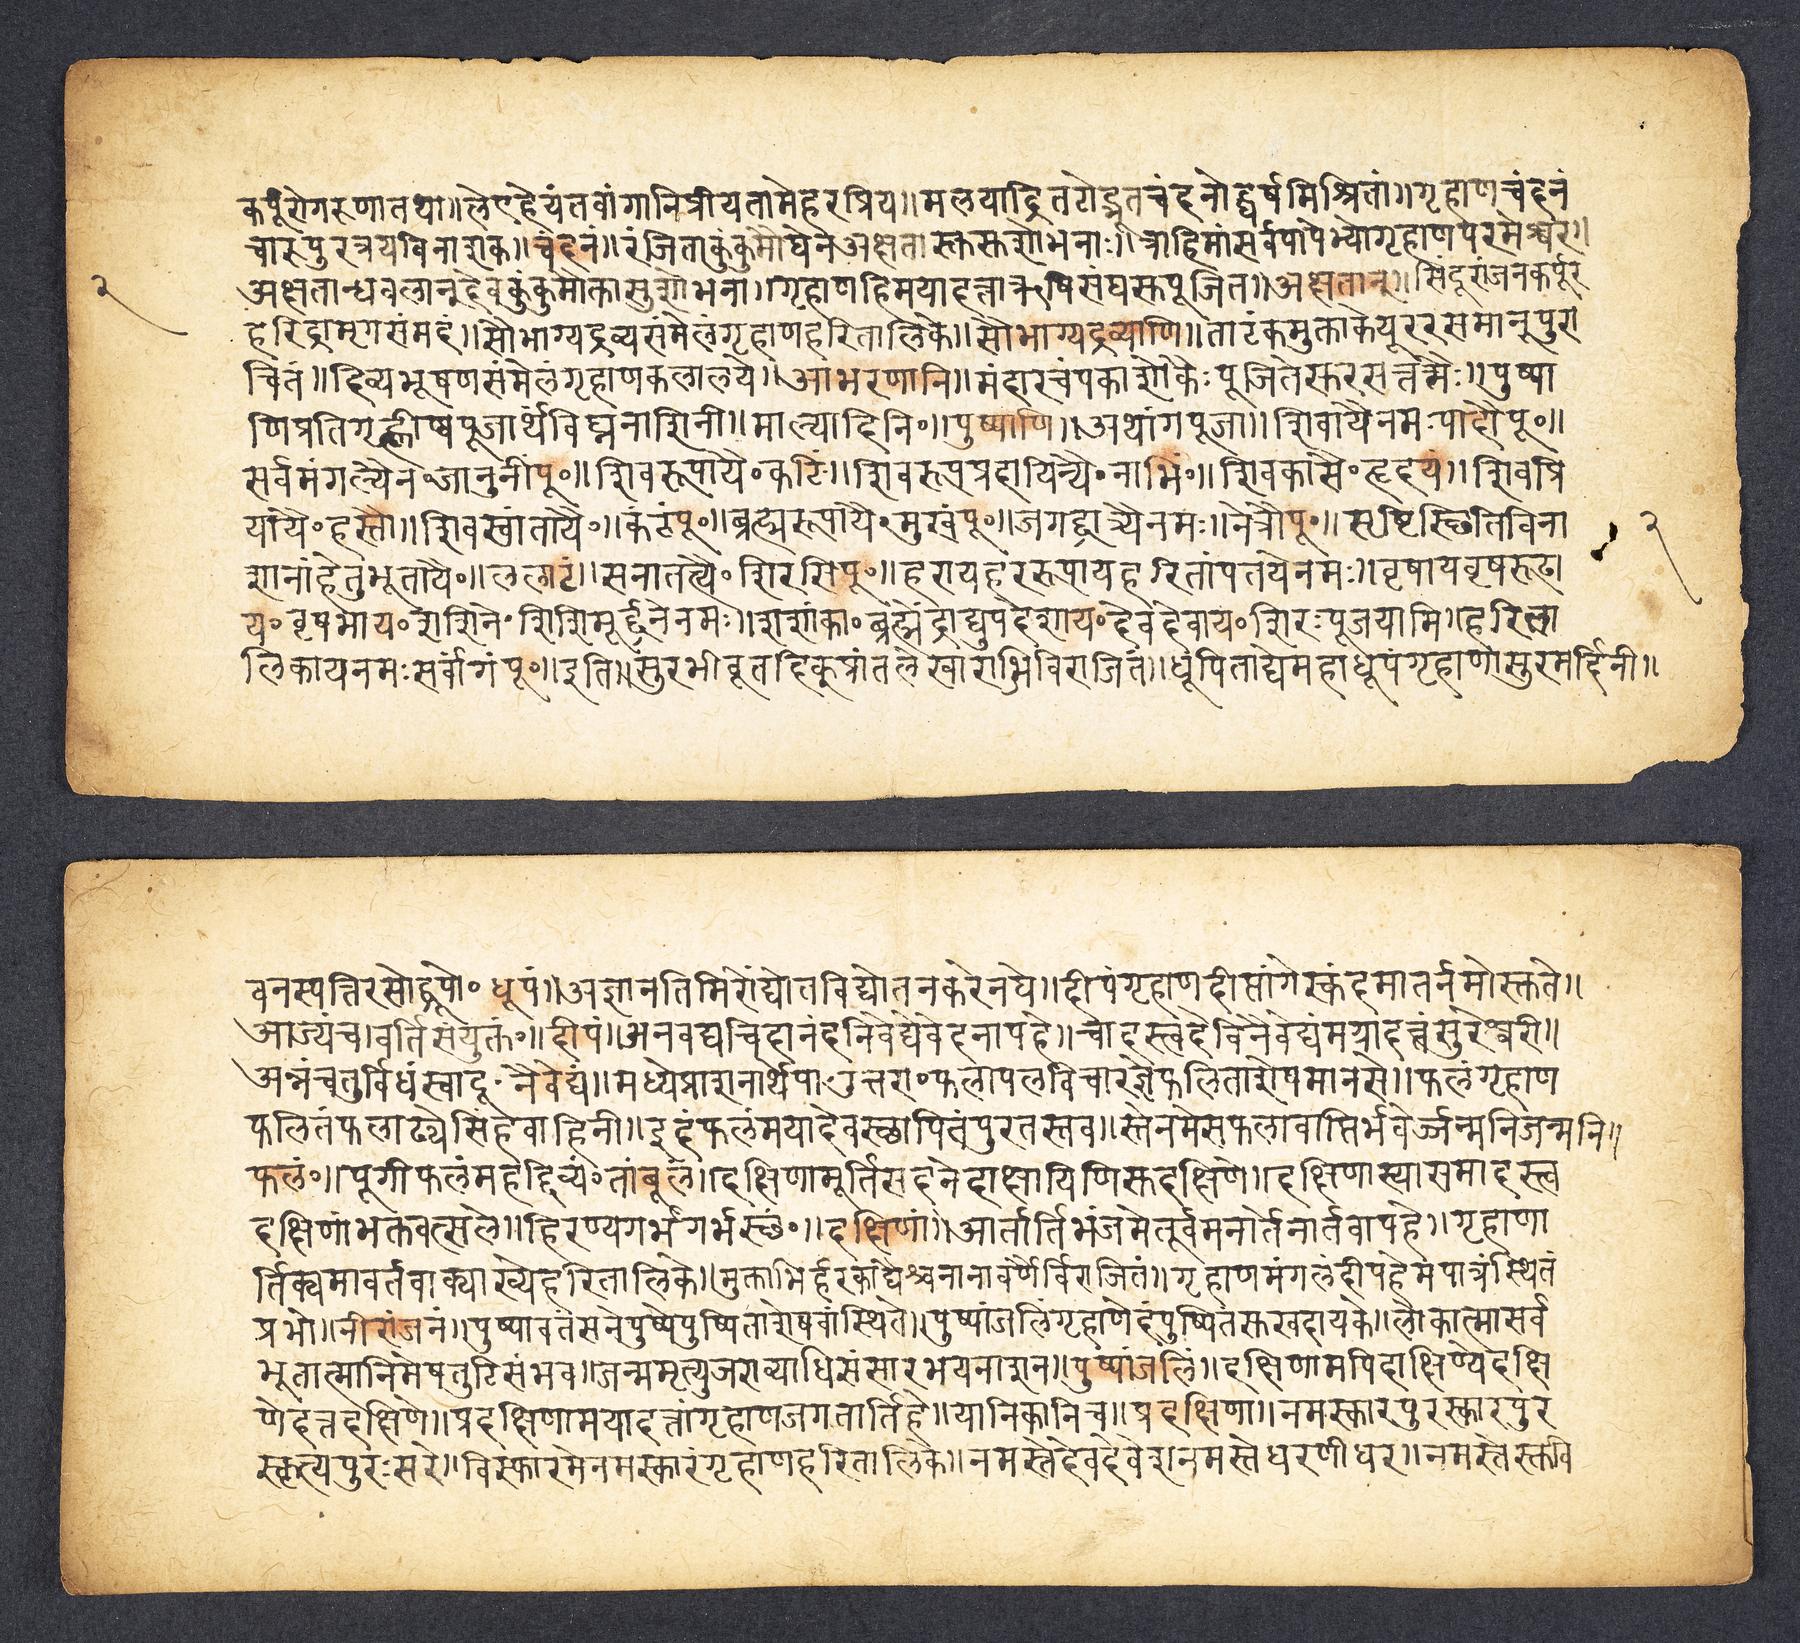 कर्पूरोगरुणातथा॥लेपहेयंतवांगानिप्रीयतामेहरप्रिय॥मलयाद्रितटोद्भूतचंदनोद्घर्षमिश्रितां॥गृहाणचंदनं
चारुपुरत्रयविनाशक॥चंदनं॥रंजिताकुंकुमौघेनअक्षतास्तस्तशोभनाः॥त्राहिमांसर्वपापेभ्योगृहाणपरमेश्वर॥
२
अक्षतान्धवलान्देवकुंकुमोक्तासुशोभना॥गृहाणहिमयादत्ताऋषिसंघस्तपूजित॥अक्षतान्॥सिंदूरांजनकर्पूर
हरिद्रामृगसंमदं॥सौभाग्यद्रव्यसंमेलंगृहाणहरितालिके॥सौभाग्यद्रव्याणि॥ताटंकमुक्ताकेयूररसमानूपुरा
चितं॥दिव्यभूषणसंमेलंगृहाणकलालये॥आभरणानि॥मंदारचंपकाशोकैःपूजितेस्तरसत्तमैः॥पुष्पा
णिप्रतिगृह्णीष्वपूजार्थंविघ्ननाशिनी॥माल्यादिनि॰॥पुष्पाणि॥अथांगपूजा॥शिवायैनमःपादौपू॰॥
सर्वमंगल्यैन॰जानुनीपू॰॥शिवरूपायै॰कटिं॥शिवरूपप्रदायिन्यै॰नाभिं॰॥शिवकांसै॰हृदयं॥शिवप्रि
यायै॰हस्तौ॥शिवस्वांतायै॰॥कंठंपू॰॥ब्रह्मरूपायै॰मुखंपू॰॥जगद्धात्र्यैनमः॥नेत्रौपू॰॥सृष्टिस्छितिविना
२
शानांहेतुभूतायै॰॥ललाटं॥सनातत्यै॰शिरसिपू॰॥हरायहररूपायहरितांपतयेनमः॥वृषायवृषरूढा
य॰वृषभाय॰शशिने॰शशिमूर्द्ध्नेनमः॥शशांका॰ब्रह्मेंद्राद्युपदेशाय॰देवदेवाय॰शिरःपूजयामि॥हरिला
लिकायनमःसर्वांगंपू॰॥इति॥सुरभीवृतदिकूप्रांतलेखाराभिविराजितं॥धूपिताद्येमहाधूपंगृहाणासुरमर्दिनी॥
वनस्पत्तिरसोद्भूपो॰धूपं॥अज्ञानतिमिरोद्योतविद्योतनकरेनघे॥दीपंगृहाणदीप्तांगेस्कंदमातर्नमोस्तते॥
आज्यंच।वर्तिसंयुक्तं॰॥दीपं॥अनवद्यचिदानंदनिवेद्येवेदनापहे॥चादस्त्वदेविनैवेद्यंमयादत्त्वंसुरेश्वरी॥
अन्नंचतुर्विधंस्वादू॰नैवेद्यं॥मध्येप्राशनार्थंपा॰उत्तरा॰फलापलविचारज्ञेफलिताशेषमानसे॥फलंगृहाण
फलितंफलाढ्येसिंहवाहिनी॥इदंफलंमयादेवस्छापितंपुरतस्तव॥स्तेनमेसफलावाप्तिर्भवेर्ज्जन्मनिजन्मनि॥
फलं॰॥पूगीफलंमहद्दिव्यं॰तांबूलं॥दक्षिणामूर्तिसदनेदाक्षायिणिस्तदक्षिणे॥दक्षिणास्यासमादस्त्व
दक्षिणांभक्तवत्सले॥हिरण्यगर्भगर्भस्छं॰॥दक्षिणां॥आर्तार्तिभंजमेतूर्वमनार्तेनार्तवापहे॥गृहाणा
र्तिक्वमावर्तवाक्याख्येहरितालिके॥मुक्ताभिर्हरकाद्यैश्चनानावर्णैर्विराजितं॥गृहाणमंगलंदीपहेमपात्रंस्थितं
प्रभो॥नीरांजनं॥पुष्पावतंसनेपुष्पेपुष्पिताशेषवास्थिते॥पुष्पांजलिंगृहाणेदंपुष्पितंस्तखदायके॥लोकात्मासर्व
भूतात्मानिमेषतुटिसंभव॥जन्ममृत्युजराव्याधिसंसारभयनाशन॥पुष्पांजलिं॥दक्षिणामपिदाक्षिण्येदक्षि
णेदंत्तदक्षिणे॥प्रदक्षिणामयादत्तांगृहाणजगतार्तिहे॥यानिकानिच॥प्रदक्षिणा॥नमस्कारपुरस्कारपुर
स्कृत्यपुरःसरे॥विस्फारमेनमस्कारंगृहाणहरितालिके॥नमस्तेदेवदेवेशनमस्तेधरणीधर॥नमस्तेस्तवि